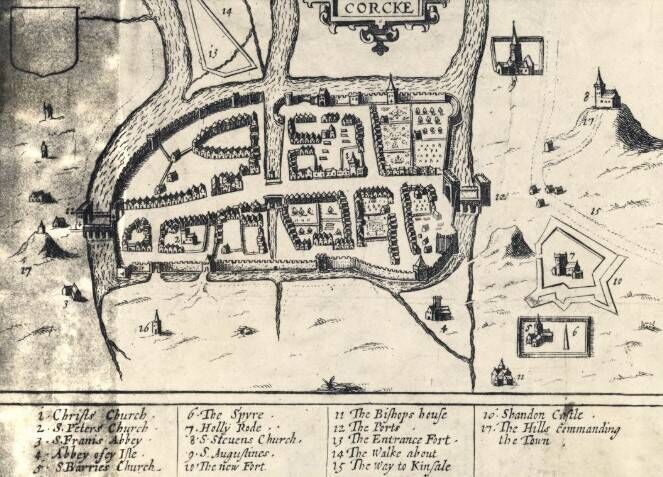 CORCKE
14
15
8
17
12
15
17
3
2
7
10
5
6
4
16
11
1. Christs Church.
2. S. Peters Church
3. S. Franis Abbey
4. Abbey ofey Isle.
5. S. Barries Church.
6. The Spyre.
7. Holly Rode.
8. S. Stevens Church.
9. S. Augustines.
10 The new Fort.
11 The Bishops house
12 The Ports
13 The Entrance Fort.
14 The Walke about
15 The Way to Kinsale
16. Shandon Castle.
17. The Hills Commanding
the Town